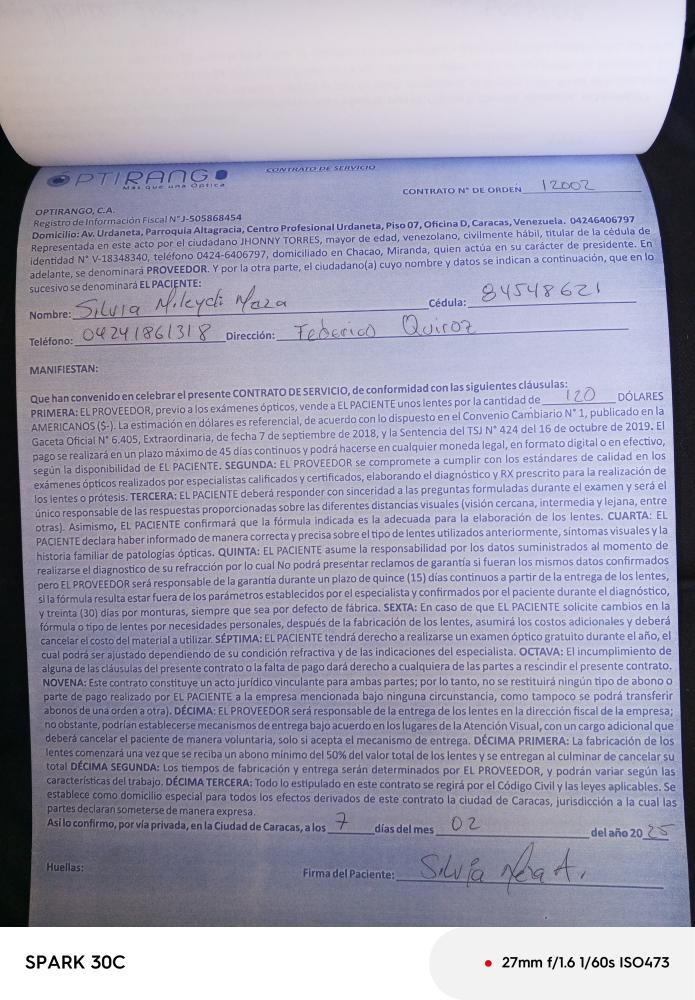 OPTIRANGO
Más que una Óptica
CONTRATO DE SERVICIO
CONTRATO N° DE ORDEN 12002
OPTIRANGO, C.A.
Registro de Información Fiscal N° J-505868454
Domicilio: Av. Urdaneta, Parroquia Altagracia, Centro Profesional Urdaneta, Piso 07, Oficina D, Caracas, Venezuela. 04246406797
Representada en este acto por el ciudadano JHONNY TORRES, mayor de edad, venezolano, civilmente hábil, titular de la cédula de
identidad N° V-18348340, teléfono 0424-6406797, domiciliado en Chacao, Miranda, quien actúa en su carácter de presidente. En
adelante, se denominará PROVEEDOR. Y por la otra parte, el ciudadano(a) cuyo nombre y datos se indican a continuación, que en lo
sucesivo se denominará EL PACIENTE:
Nombre: Silvia Mileydi Meza Cédula: 84548621
Teléfono: 04241861318 Dirección: Federico Quiroz
MANIFIESTAN:
Que han convenido en celebrar el presente CONTRATO DE SERVICIO, de conformidad con las siguientes cláusulas:
PRIMERA: EL PROVEEDOR, previo a los exámenes ópticos, vende a EL PACIENTE unos lentes por la cantidad de 120 DÓLARES
AMERICANOS ($-). La estimación en dólares es referencial, de acuerdo con lo dispuesto en el Convenio Cambiario N° 1, publicado en la
Gaceta Oficial N° 6.405, Extraordinaria, de fecha 7 de septiembre de 2018, y la Sentencia del TSJ N° 424 del 16 de octubre de 2019. El
pago se realizará en un plazo máximo de 45 días continuos y podrá hacerse en cualquier moneda legal, en formato digital o en efectivo,
según la disponibilidad de EL PACIENTE. SEGUNDA: EL PROVEEDOR se compromete a cumplir con los estándares de calidad en los
exámenes ópticos realizados por especialistas calificados y certificados, elaborando el diagnóstico y RX prescrito para la realización de
los lentes o prótesis. TERCERA: EL PACIENTE deberá responder con sinceridad a las preguntas formuladas durante el examen y será el
único responsable de las respuestas proporcionadas sobre las diferentes distancias visuales (visión cercana, intermedia y lejana, entre
otras). Asimismo, EL PACIENTE confirmará que la fórmula indicada es la adecuada para la elaboración de los lentes. CUARTA: EL
PACIENTE declara haber informado de manera correcta y precisa sobre el tipo de lentes utilizados anteriormente, síntomas visuales y la
historia familiar de patologías ópticas. QUINTA: EL PACIENTE asume la responsabilidad por los datos suministrados al momento de
realizarse el diagnostico de su refracción por lo cual No podrá presentar reclamos de garantía si fueran los mismos datos confirmados
pero EL PROVEEDOR será responsable de la garantía durante un plazo de quince (15) días continuos a partir de la entrega de los lentes,
si la fórmula resulta estar fuera de los parámetros establecidos por el especialista y confirmados por el paciente durante el diagnóstico,
y treinta (30) días por monturas, siempre que sea por defecto de fábrica. SEXTA: En caso de que EL PACIENTE solicite cambios en la
fórmula o tipo de lentes por necesidades personales, después de la fabricación de los lentes, asumirá los costos adicionales y deberá
cancelar el costo del material a utilizar. SÉPTIMA: EL PACIENTE tendrá derecho a realizarse un examen óptico gratuito durante el año, el
cual podrá ser ajustado dependiendo de su condición refractiva y de las indicaciones del especialista. OCTAVA: El incumplimiento de
alguna de las cláusulas del presente contrato o la falta de pago dará derecho a cualquiera de las partes a rescindir el presente contrato.
NOVENA: Este contrato constituye un acto jurídico vinculante para ambas partes; por lo tanto, no se restituirá ningún tipo de abono o
parte de pago realizado por EL PACIENTE a la empresa mencionada bajo ninguna circunstancia, como tampoco se podrá transferir
abonos de una orden a otra). DÉCIMA: EL PROVEEDOR será responsable de la entrega de los lentes en la dirección fiscal de la empresa;
no obstante, podrían establecerse mecanismos de entrega bajo acuerdo en los lugares de la Atención Visual, con un cargo adicional que
deberá cancelar el paciente de manera voluntaria, solo si acepta el mecanismo de entrega. DÉCIMA PRIMERA: La fabricación de los
lentes comenzará una vez que se reciba un abono mínimo del 50% del valor total de los lentes y se entregan al culminar de cancelar su
total DÉCIMA SEGUNDA: Los tiempos de fabricación y entrega serán determinados por EL PROVEEDOR, y podrán variar según las
características del trabajo. DÉCIMA TERCERA: Todo lo estipulado en este contrato se regirá por el Código Civil y las leyes aplicables. Se
establece como domicilio especial para todos los efectos derivados de este contrato la ciudad de Caracas, jurisdicción a la cual las
partes declaran someterse de manera expresa.
Así lo confirmo, por vía privada, en la Ciudad de Caracas, a los 7 días del mes 02 del año 2025
Huellas:
Firma del Paciente: Silvia Meza A.
SPARK 30C
27mm f/1.6 1/60s ISO473